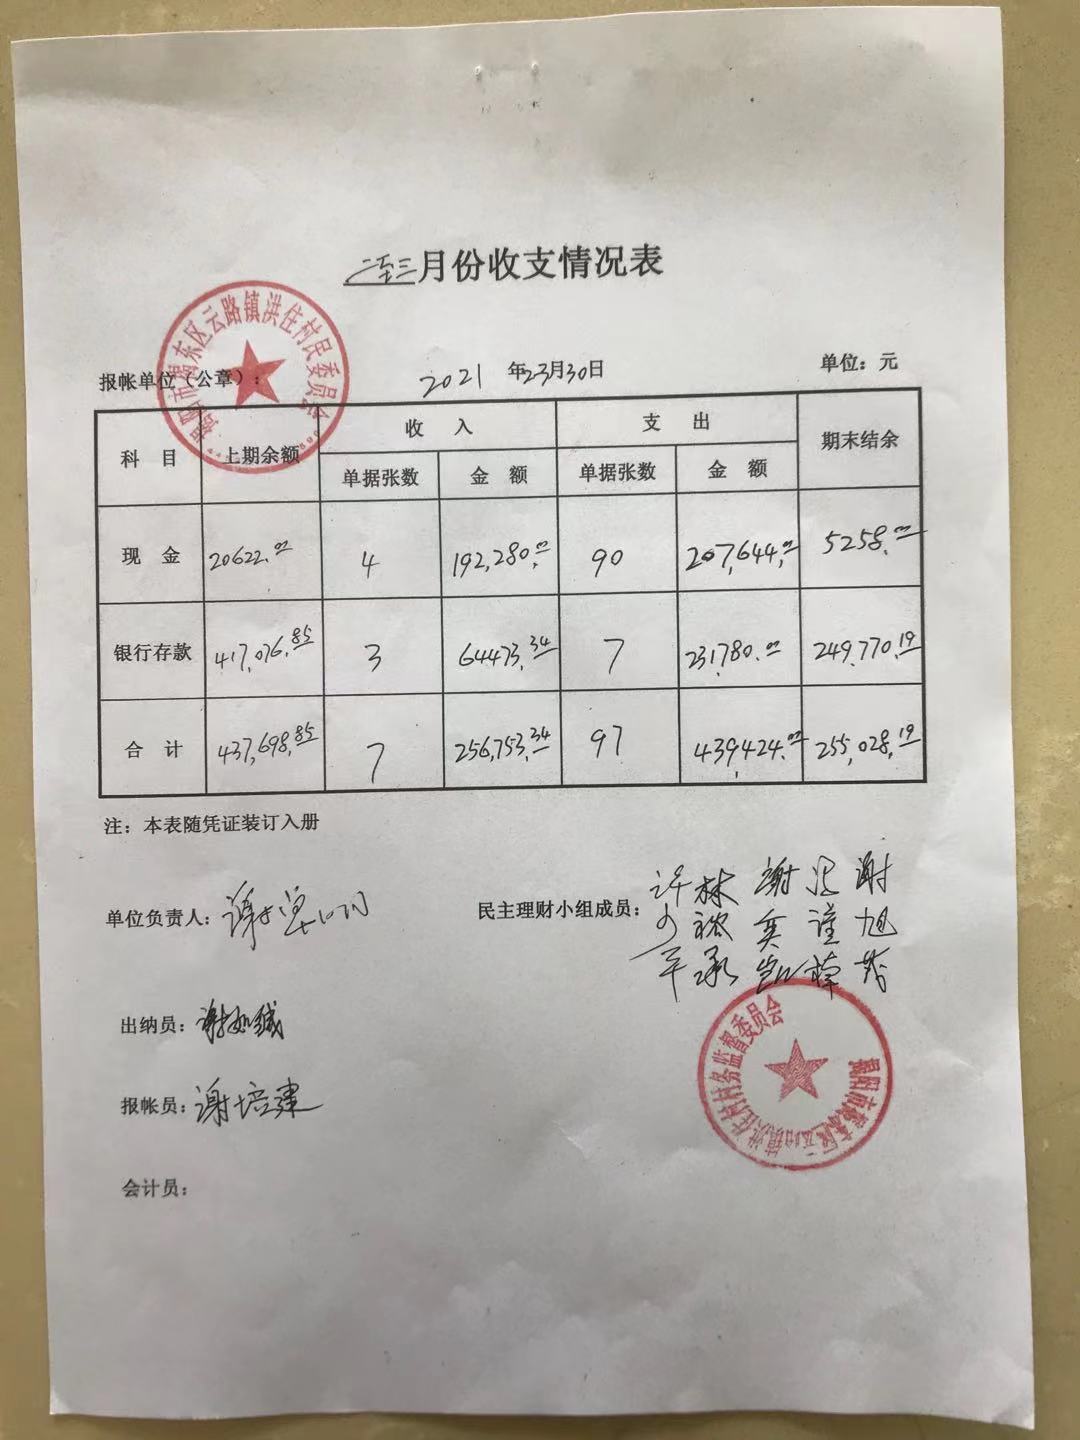 二至三月份收支情况表
揭阳市揭东区云路镇洪住村民委员会
报帐单位（公章）： 2021 年2-3月30日 单位：元
科 目 上期余额 收 入 支 出 期末结余
单据张数 金 额 单据张数 金 额
现 金 20622.00 4 192,280.00 90 207,644.00 5258.00
银行存款 417,076.85 3 64473.34 7 231,780.00 249,770.19
合 计 437,698.85 7 256,753.34 97 439,424.00 255,028.19
注：本表随凭证装订入册
单位负责人： 民主理财小组成员： 许少平 林 承 谢奕凯 谨 谢旭
出纳员：谢
报帐员：谢培建
会计员：
揭阳市揭东区云路镇洪住村村务监督委员会